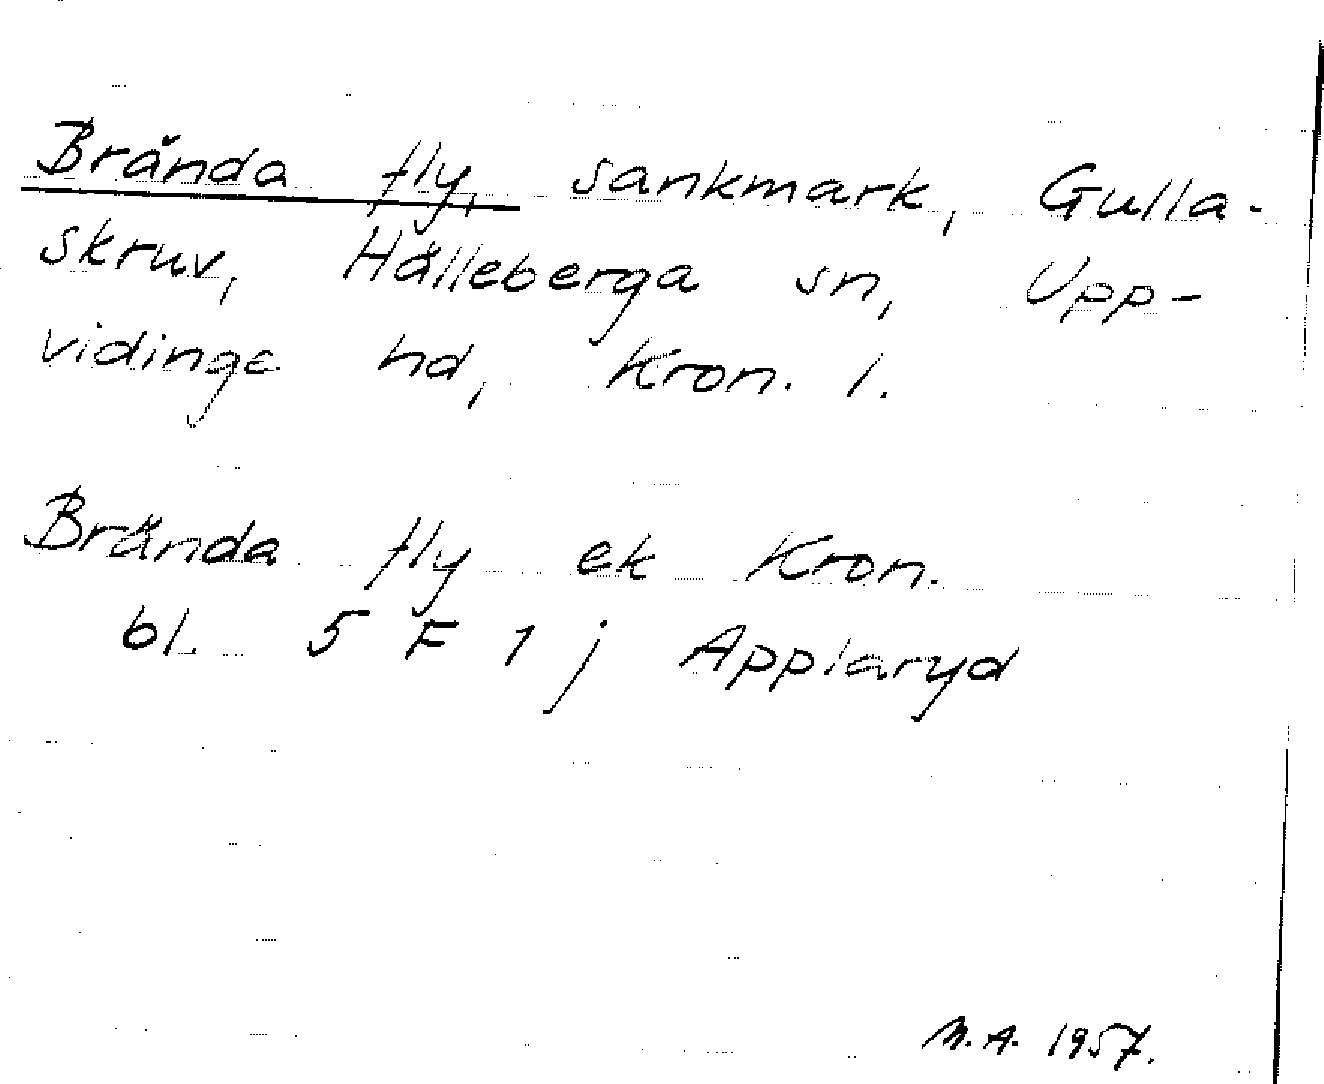 Brända fly, sankmark, Gulla-
skruv, Hälleberga sn, Upp-
vidinge hd, Kron. l.
Brända fly ek Kron.
bl. 5 F 1 j Applaryd
M.A. 1957.